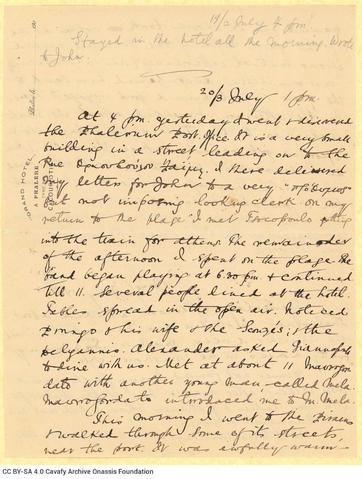 19/2 July 4 pm.
Stayed in the hotel all the morning. Wrote
to John.
20/3 July 1 pm.
At 4 pm. yesterday I went & discovered
the Phalerum Post Office. It is a very small
building in a street leading on to the
Rue. I there delivered
my letters for John to a very
but not imposing looking clerk. On my
return to the "plage" I met
into the train for Athens. The remainder
of the afternoon I spent on the plage. The
band began playing at 6.30 pm & continued
till 11. Several people dined at the hotel.
Tables spread in the open air. Noticed
& his wife & the & the
Delyannis. Alexander asked
to dine with us. Met at about 11 Mavrogor-
dato with another young man, called Mela.
Mavrogordato introduced me to Mr. Mela.
This morning I went to the Piraeus
& walked through some of its streets,
near the port. It was awfully warm
GRAND HOTEL
PHALÈRE
CC BY-SA 4.0 Cavafy Archive Onassis Foundation